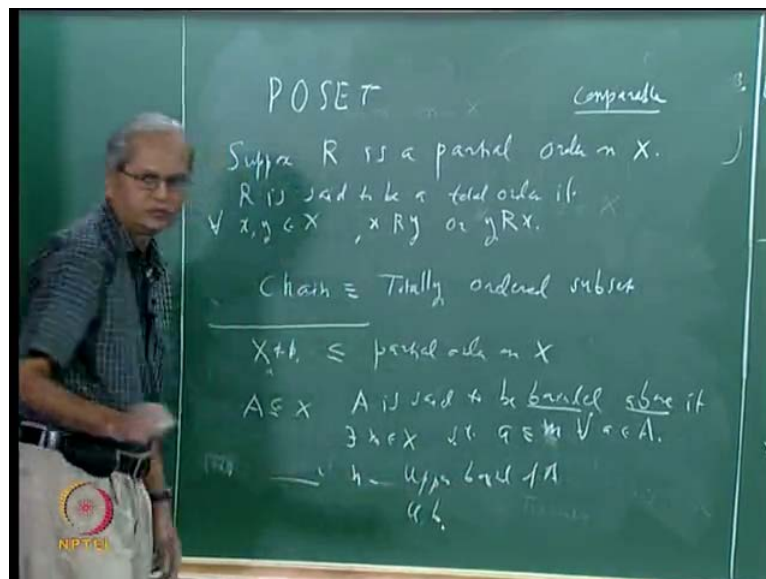 POSET
Comparable
Suppose R is a partial order on X.
R is said to be a total order if
∀ x, y ∈ X , x R y or y R x.
Chain ≡ Totally ordered subset
X ≤ partial order on X
A ⊆ X A is said to be bounded above if
∃ ∈ X s.t. a ≤ ∀ a ∈ A.
Upper bound of A
u.b.
NPTEL